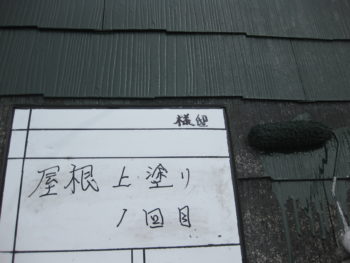 様邸
屋根上塗り
1回目